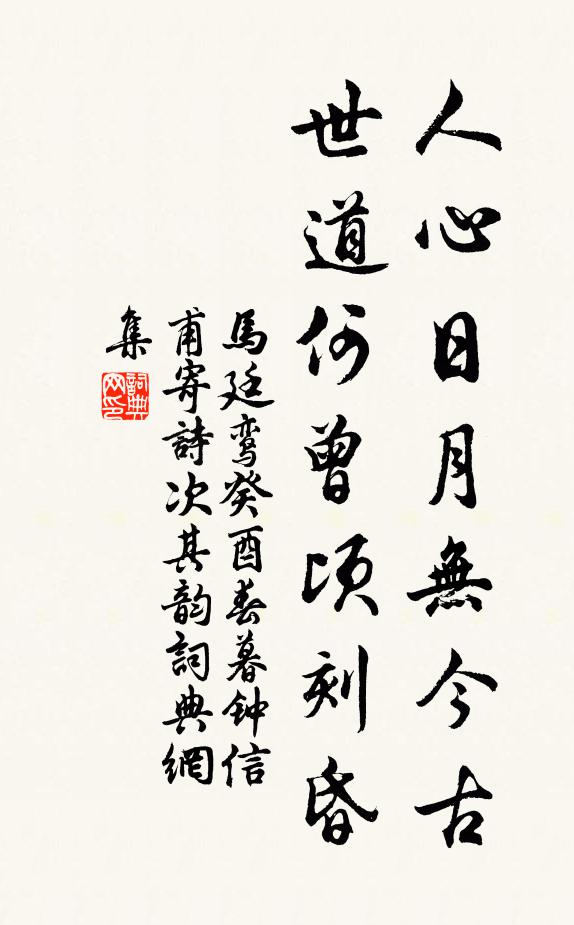 人心日月無今古
世道何曾頃刻昏
馬廷鸾癸酉春暮钟信
甫寄詩次其韵詞典網
集
詞典
网印